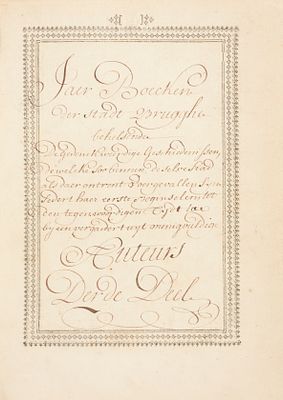 Jaer Boecken
der Stadt Brugghe
behelsende
De Gedenckweerdige Geschiedenissen,
dewelcke soo binnen de selve Stad
als daer ontrent voorgevallen syn
sedert haer eerste beginselen tot
den tegenwoordigen Tydt toe
by een vergadert uyt menigvuldige
Auteurs
Derde Deel